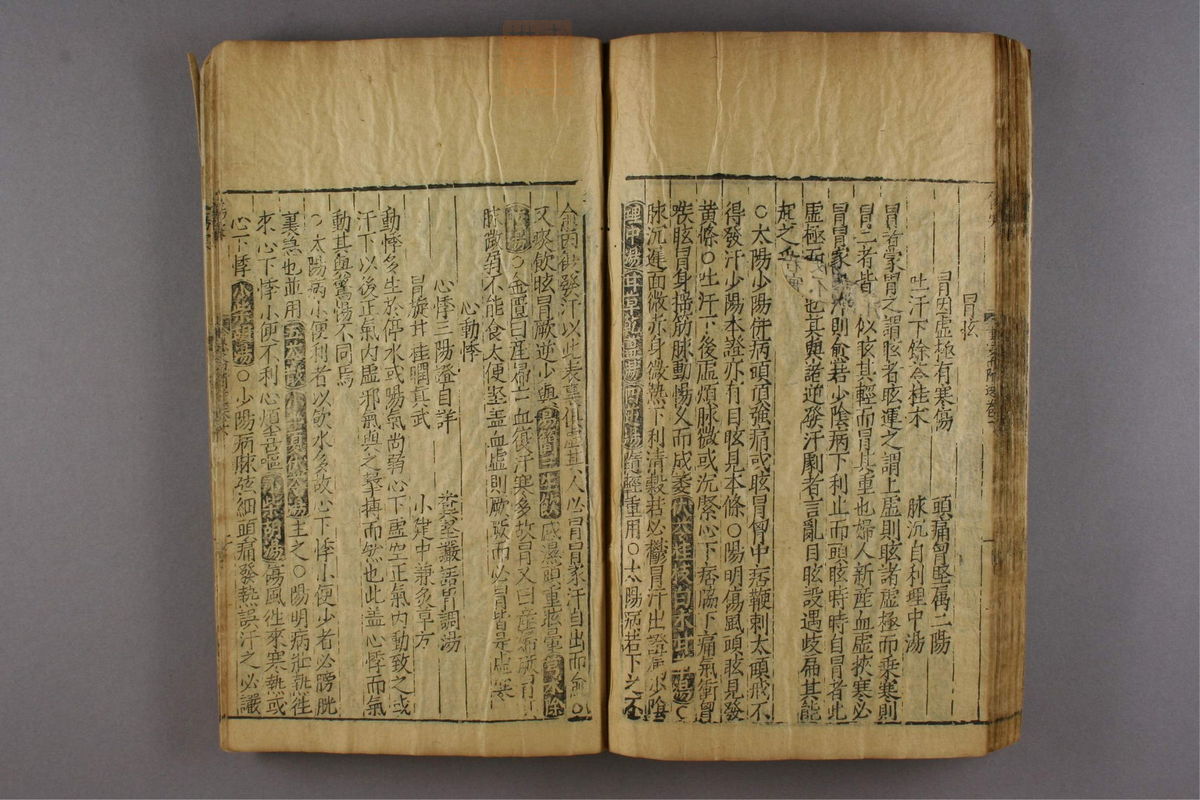 冒眩
冒因虛極有寒傷　頭痛胷堅屬二陽
吐汗下餘今桂木　脉沉自利理中湯
冒者蒙冒之謂眩者眩運之謂上虛則眩諸虛極而乘寒則
冒二者皆似眩其輕而冒其重也婦人新産血虛挾寒必
冒冒家汗則愈若少陰病下利止而頭眩時時自冒者此
虛極而也其與諸逆發汗劇者言亂目眩設遇歧扁其能
起之
○太陽少陽併病頭項強痛或眩冒胷中痞鞕刺太頭戒不
得發汗少陽本證亦有目眩見本條○陽明傷風頭眩見發
黃條○吐汗下後虛煩脉微或沉緊心下痞脇下痛氣衝胷
喉眩冒身揺筋脉動惕久而成痿茯苓桂枝白术甘草湯○
脉沉遲面微赤身微熱下利清穀者必鬱冒汗出證屬少陰
理中湯甘草乾薑湯四逆湯隨輕重用○太陽病若下之不
俞因復發汗以此表裏俱虛其人必冒冒家汗自出而愈○
又嗽飲眩冒厥逆少與湯三生飲感濕頭重眩暈朮附
湯○金匱曰産婦亡血復汗寒多故冒又曰産婦病有
脉微弱不能食大便堅蓋血虛則厥厥而必冒皆是虛寒
心動悸
心悸三陽證自詳　柴莖讝語胃調湯
冒旋并桂瞤真武　小建中兼炙草方
動悸多生於停水或陽氣尚弱心下虛空正氣內動致之或
汗下以後正氣內虛邪氣與之擊搏而然也此蓋心悸而氣
動其與驚惕不同焉
○太陽病小便利者以飲水多故心下悸小便少者必膀胱
裏急也並用五苓散小半夏茯苓湯主之○陽明病壯熱徃
來心下悸小便不利心煩喜嘔小柴胡湯傷風徃來寒熱或
心下悸湯○少陽病脉弦細頭痛發熱誤汗之必讝